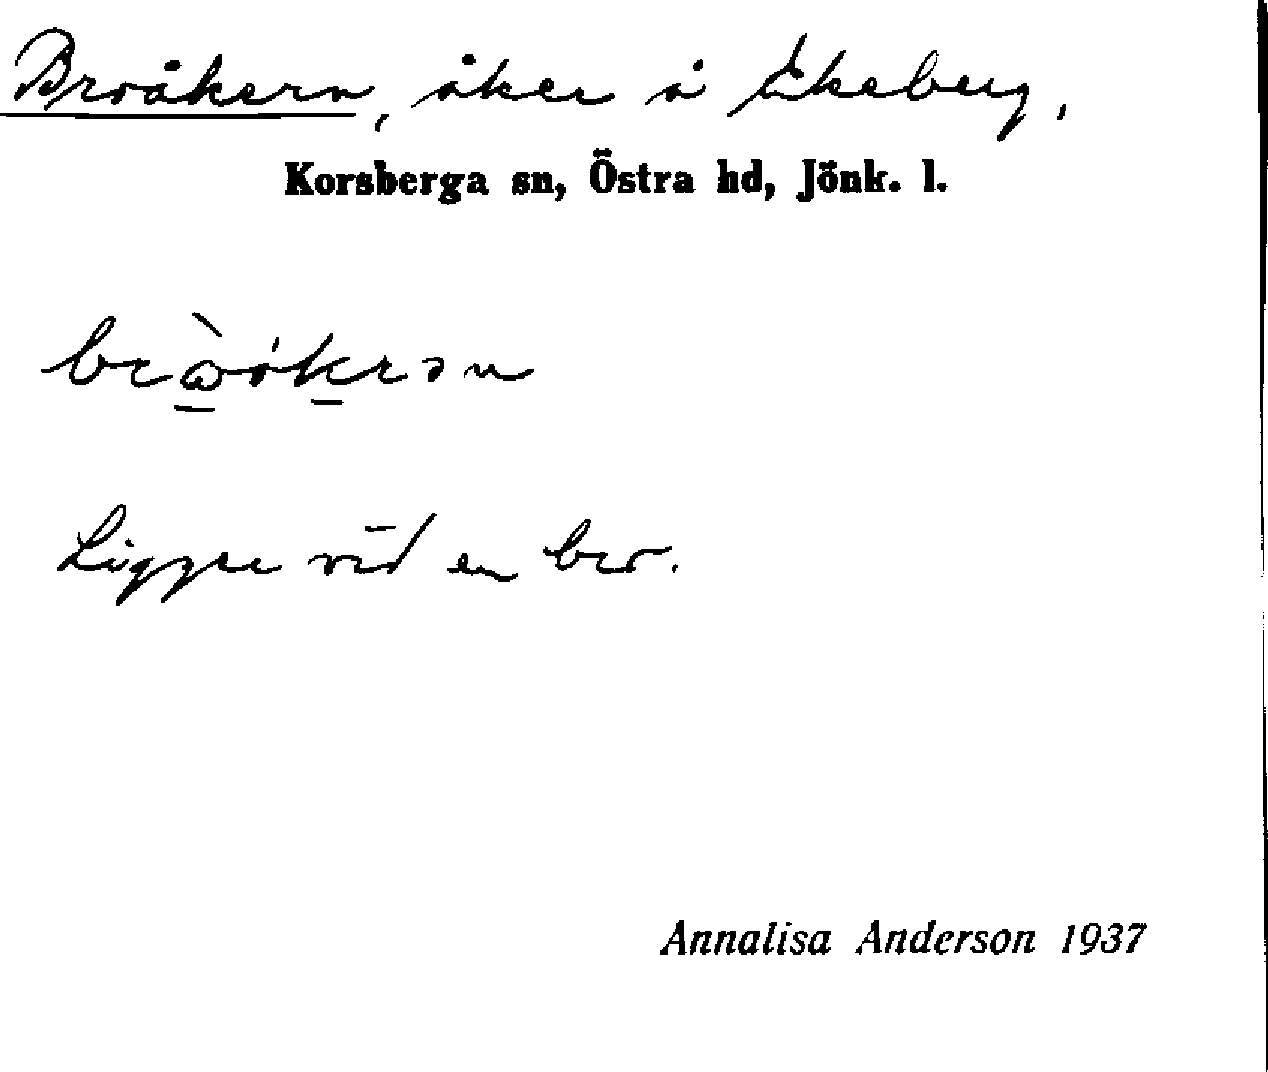 Broåkern, åker å Ekeberg,
Korsberga sn, Östra hd, Jönk. l.
Ligger vid en bro.
Annalisa Anderson 1937